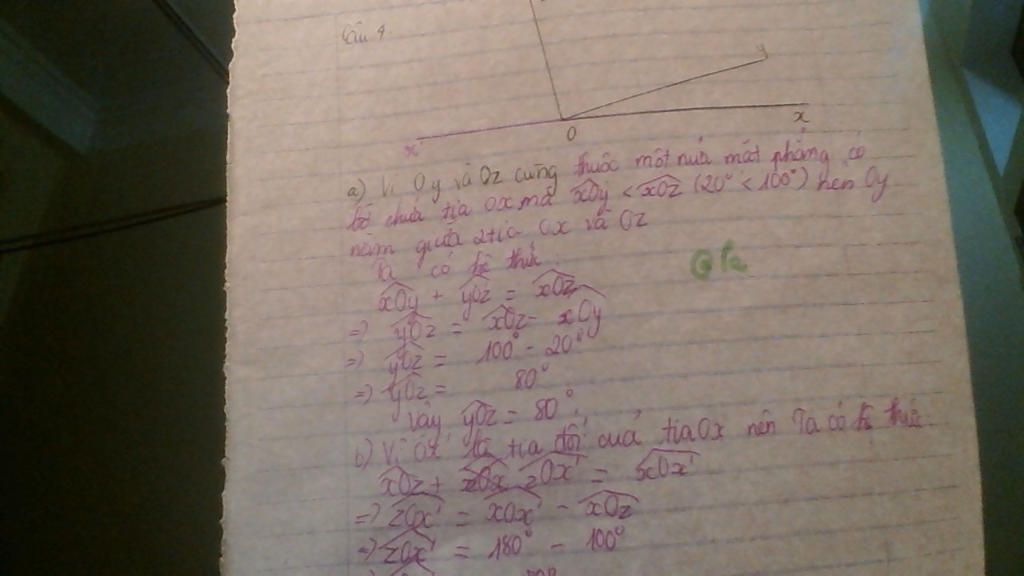 Câu 4.
y
O
x
x'
a) Vì Oy và Oz cùng thuộc một nửa mặt phẳng có
bờ chứa tia Ox mà xOy < xOz (20° < 100°) nên Oy
nằm giữa 2 tia Ox và Oz
Ta có hệ thức:
xOy + yOz = xOz
=> yOz = xOz - xOy
=> yOz = 100° - 20°
=> yOz = 80°
Vậy yOz = 80°.
b) Vì Ox' là tia đối của tia Ox nên Ta có hệ thức
xOz + zOx' = xOx'
=> zOx' = xOx' - xOz
=> zOx' = 180° - 100°